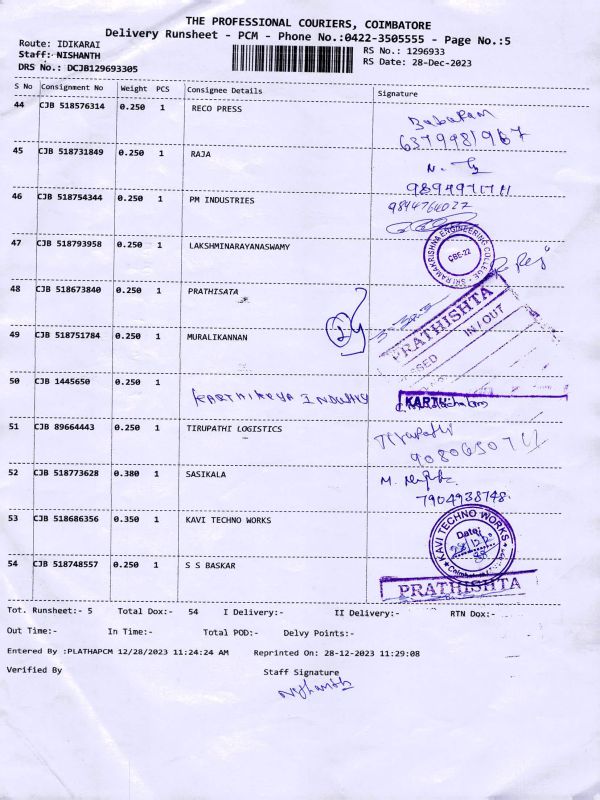 THE PROFESSIONAL COURIERS, COIMBATORE
Delivery Runsheet - PCM - Phone No.:0422-3505555 - Page No.:5
Route: IDIKARAI
RS No.: 1296933
Staff: NISHANTH
RS Date: 28-Dec-2023
DRS No.: DCJB129693305
S No Consignment No Weight PCS Consignee Details Signature
44 CJB 518576314 0.250 1 RECO PRESS
Babaram
6379981967
45 CJB 518731849 0.250 1 RAJA
46 CJB 518754344 0.250 1 PM INDUSTRIES
9894764022
47 CJB 518793958 0.250 1 LAKSHMINARAYANASWAMY
SRI RAMAKRISHNA ENGINEERING COLLEGE
CBE-22
48 CJB 518673840 0.250 1 PRATHISATA
PRATHISHTA
IN / OUT
49 CJB 518751784 0.250 1 MURALIKANNAN
50 CJB 1445650 0.250 1 KARTHIKEYA INDUSTRY
51 CJB 89664443 0.250 1 TIRUPATHI LOGISTICS
Tirupathi
52 CJB 518773628 0.380 1 SASIKALA
7904938748.
53 CJB 518686356 0.350 1 KAVI TECHNO WORKS
KAVI TECHNO WORKS
Date:
Coimbatore
54 CJB 518748557 0.250 1 S S BASKAR
PRATHISHTA
Tot. Runsheet:- 5 Total Dox:- 54 I Delivery:- II Delivery:- RTN Dox:-
Out Time:- In Time:- Total POD:- Delvy Points:-
Entered By :PLATHAPCM 12/28/2023 11:24:24 AM Reprinted On: 28-12-2023 11:29:08
Verified By Staff Signature